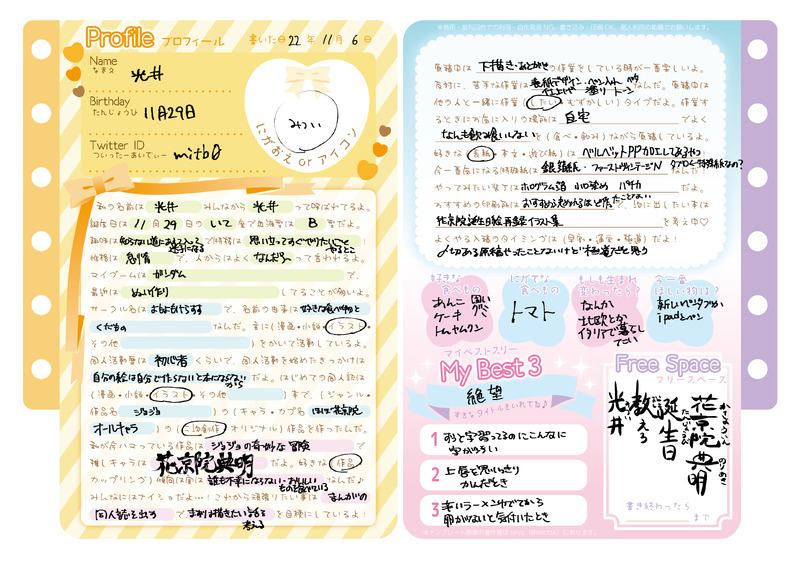 Profile プロフィール 書いた日 22年 11月 6日
Name 光井
なまえ
Birthday 11月29日
たんじょうび
Twitter ID mitb0
ついったーあいでぃー
みつい
にがおえ or アイコン
私の名前は 光井 みんなから 光井 って呼ばれてるよ。
誕生日は 11月 29日の いて座で血液型は B 型だよ。
趣味は 知らない道に入って迷子になる で特技は 思い立ってすぐやりたいことやること
性格は 怠惰 で、人からはよく なんだろう って言われるよ。
マイブームは ガンダム で、
最近は ぬい作り してることが多いよ。
サークル名は で、名前の由来は 好きな食べ物と
くだもの なんだ。主に(漫画・小説・イラスト・
その他 )をかいて活動しているよ。
同人活動歴は 初心者 くらいで、同人活動を始めたきっかけは
自分の絵は自分で作らないと本にならないから だよ。はじめての同人誌は
(漫画・小説・イラスト・その他 )本で、(ジャンル・
作品名 ジョジョ )の(キャラ・カプ名 ほぼ花京院
オールキャラ )の(二次創作・オリジナル)作品を作ったんだ。
私が今ハマっている作品は ジョジョの奇妙な冒険 で
推しキャラは 花京院典明 だよ。好きな(作品・
カップリング)傾向は実は 誰も不幸にならない・おいしいものを食べている なんだ♪
みんなにはナイショだよ…!これから頑張りたい事は まんがの
同人誌を出す で、 まずは描きたい話を考える を目標にしているよ!
原稿中は 下描き・あとがき の作業をしている時が一番楽しいよ。
反対に、苦手な作業は 表紙デザイン・ペン入れ ベタ 仕上げ 塗り トーン なんだ。原稿中は
他の人と一緒に作業(したい・むずかしい)タイプだよ。作業す
るときにお気に入りの場所は 自宅 でよく
なんも飲み食いしない を(食べ・飲み)ながら原稿しているよ。
好きな(表紙・本文・遊び紙)は ベルベットPP加工してあるみわ
今一番気になる特殊紙は 銀鏡紙・ファーストヴィンテージN なんだ!
やってみたい装丁は ホログラム箔 小口染め パチカ だよ。
おすすめの印刷所は おすすめが決めれるほど作ったことない で、次に出したい本は
花京院誕生日絵再録イラスト集 を考え中♡
よくやる入稿のタイミングは(早割・通常・極道)だよ!
〆切ある原稿やったことないけど極道だと思う
好きな食べもの
あんこ
ケーキ
トムヤムクン
にがてな食べもの
トマト
もしも生まれ変わったら?
なんか
北欧とか
イタリアで暮らしてたい
今一番ほしい物は?
新しいペンタブか
ipadとペン
マイベストスリー
My Best 3
絶望
すきなタイトルをいれてね♪
1 ずっと学習ってるのにこんなに字がきたない
2 上唇を思いっきりかんだとき
3 辛いラーメンゆでてから卵がないと気付いたとき
Free Space
フリースペース
花京院典明
かきょういん のりあき
誕生日
たんじょうび
教えろ
光井
書き終わったら
まで